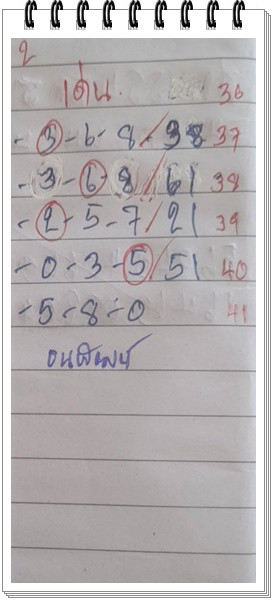 2
เด่น 36
- 3 - 6 - 8 / 38 37
- 3 - 6 - 8 / 61 38
- 2 - 5 - 7 / 21 39
- 0 - 3 - 5 / 51 40
- 5 - 8 - 0 41